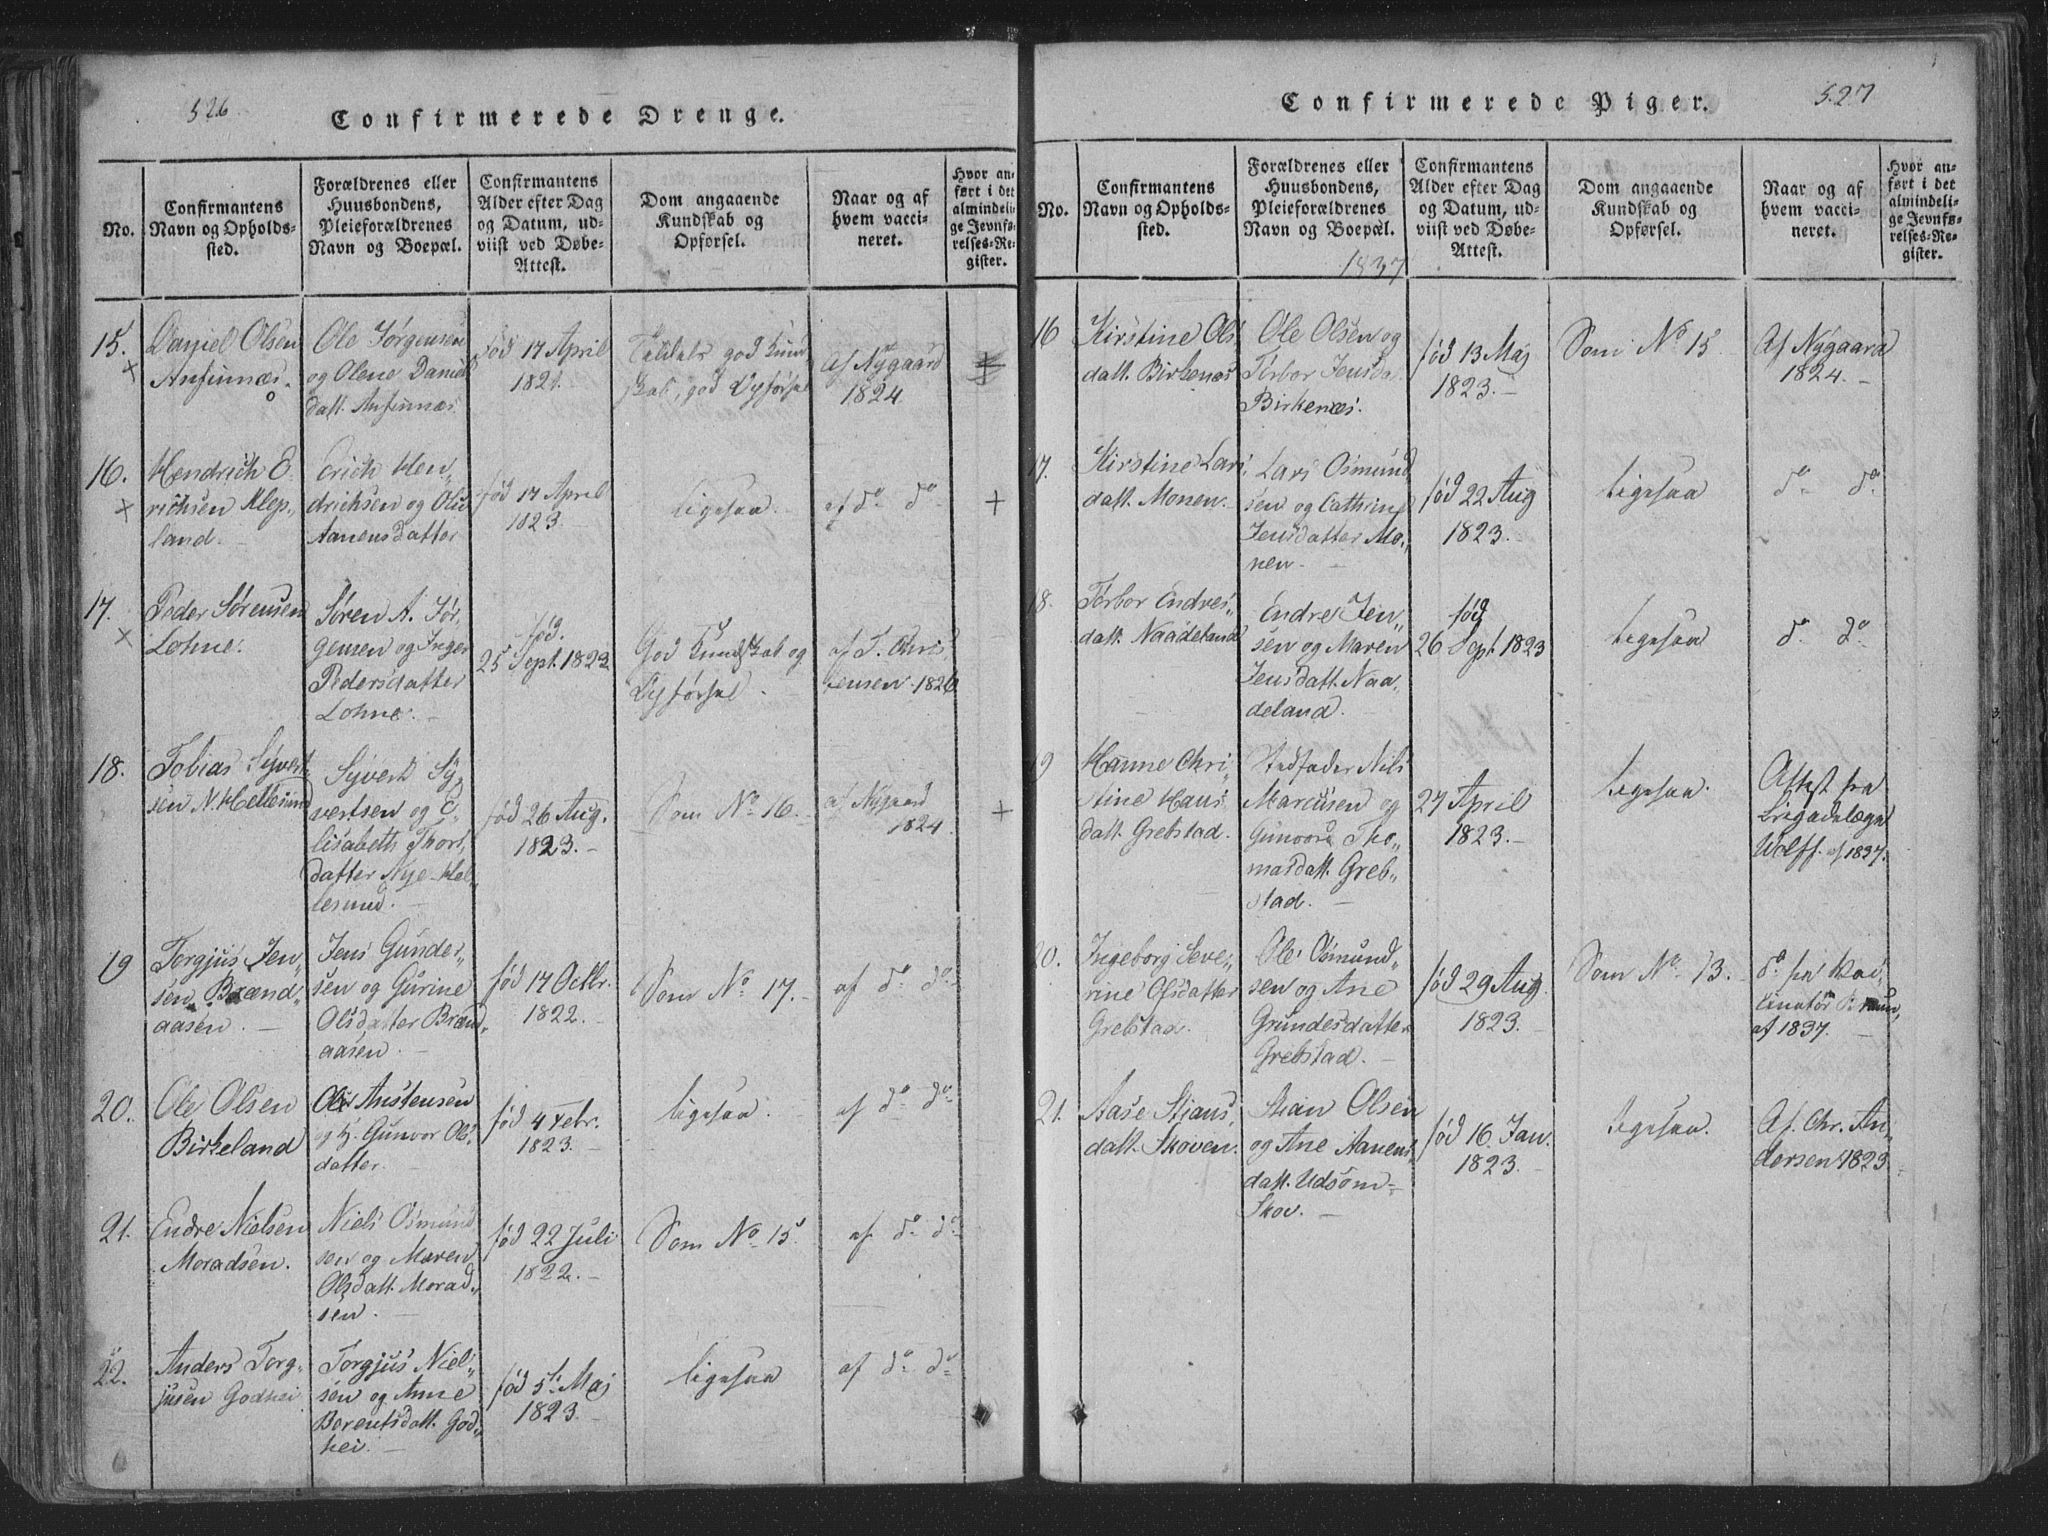 526
Confirmerede Drenge.
No.
Confirmantens
Navn og Opholds-
sted.
Forældrenes eller
Huusbondens,
Pleieforældrenes
Navn og Boepæl.
Confirmantens
Alder efter Dag
og Datum, ud-
viist ved Døbe-
Attest.
Dom angaaende
Kundskab og
Opførsel.
Naar og af
hvem vacci-
neret.
Hvor an-
ført i det
almindeli-
ge Jevnfø-
relses-Re-
gister.
15.
Daniel Olsen
Anfinnæs.
Ole Jørgensen
og Olene Daniels
datt. Anfinnæs.
fød 17 April
1821.
god Kund
skab, god Opførsel
Af Nygaard
1824.
16.
Hendrich E
richsen Klep„
land.
Erich Hen„
drichsen og
Aanensdatter
fød 17 April
1823.
ligesaa.
af do do
+
17.
Peder Sørensen
Lohne.
Søren A. Jør„
gensen og Inger
Pedersdatter
Lohne.
fød.
25 Sept. 1823
God Kundskab og
Opførsel.
af T. Chris
tensen. 1826.
18.
Tobias Syvert
sen N. Hellesund
Syvert Sy„
vertsen og E„
lisabeth Thors
datter Nye-Hel„
lesund.
fød 26 Aug.
1823.
Som No 16.
af Nygaard
1824.
+
19
Torgjus Jen„
sen Brænd„
aasen.
Jens Gunder„
sen og Gurine
Olsdatter Brænd„
aasen.
fød 17 Octbr.
1822.
Som No 17.
af do do
20.
Ole Olsen
Birkeland
Ole Austensen
og K. Gunvor Ols
datter.
fød 4 Febr.
1823.
ligesaa.
af do do
21.
Endre Nielsen
Moradsen.
Niels Osmund
sen og Maren
Olsdatt. Morad„
sen.
fød 22 Juli
1822.
Som No 15.
af do do
22.
Anders Torg„
jusen Godhei
Torgjus Niel„
sen og Anne
Berentsdatt. God„
hei.
fød 5te Maj
1823.
ligesaa
af do do
527
Confirmerede Piger.
No.
Confirmantens
Navn og Opholds-
sted.
Forældrenes eller
Huusbondens,
Pleieforældrenes
Navn og Boepæl.
1837
Confirmantens
Alder efter Dag
og Datum, ud-
viist ved Døbe-
Attest.
Dom angaaende
Kundskab og
Opførsel.
Naar og af
hvem vacci-
neret.
Hvor an-
ført i det
almindeli-
ge Jevnfø-
relses-Re-
gister.
16
Kirstine Ols
datt. Birkenæs
Ole Olsen og
Torbor Jensda
Birkenæs.
fød 13 Maj
1823.
Som No 15
Af Nygaard
1824.
17.
Kirstine Lars
datt. Monen.
Lars Osmund
sen og Cathrine
Jensdatter Mo„
nen.
fød 22 Aug
1823.
ligesaa
do do
18.
Torbor Endres„
datt. Naadeland
Endre Jen„
sen og Maren
Jensdatt. Naa„
deland.
fød
26 Sept. 1823
ligesaa
do do
19
Hanne Chri„
stine Hans
datt. Grebstad.
Stedfader Nils
Marcusen og
Gunvor Tho„
masdatt. Greb„
stad.
27 April
1823.
ligesaa.
Attest fra
Brigadelæge
Wolff. af 1837.
20.
Ingeborg Seve„
rine Olsdatter
Grebstad.
Ole Osmund„
sen og Ane
Gundersdatter
Grebstad.
fød 29 Aug
1823.
Som No. 13.
do fra Vac„
cinatør Braun,
af 1837.
21.
Aase Stians
datt. Skoven.
Stian Olsen
og Ane Aanens
datt. Udsøm„
Skov.
fød 16. Jan.
1823.
ligesaa.
Af Chr. An„
dersen 1823.